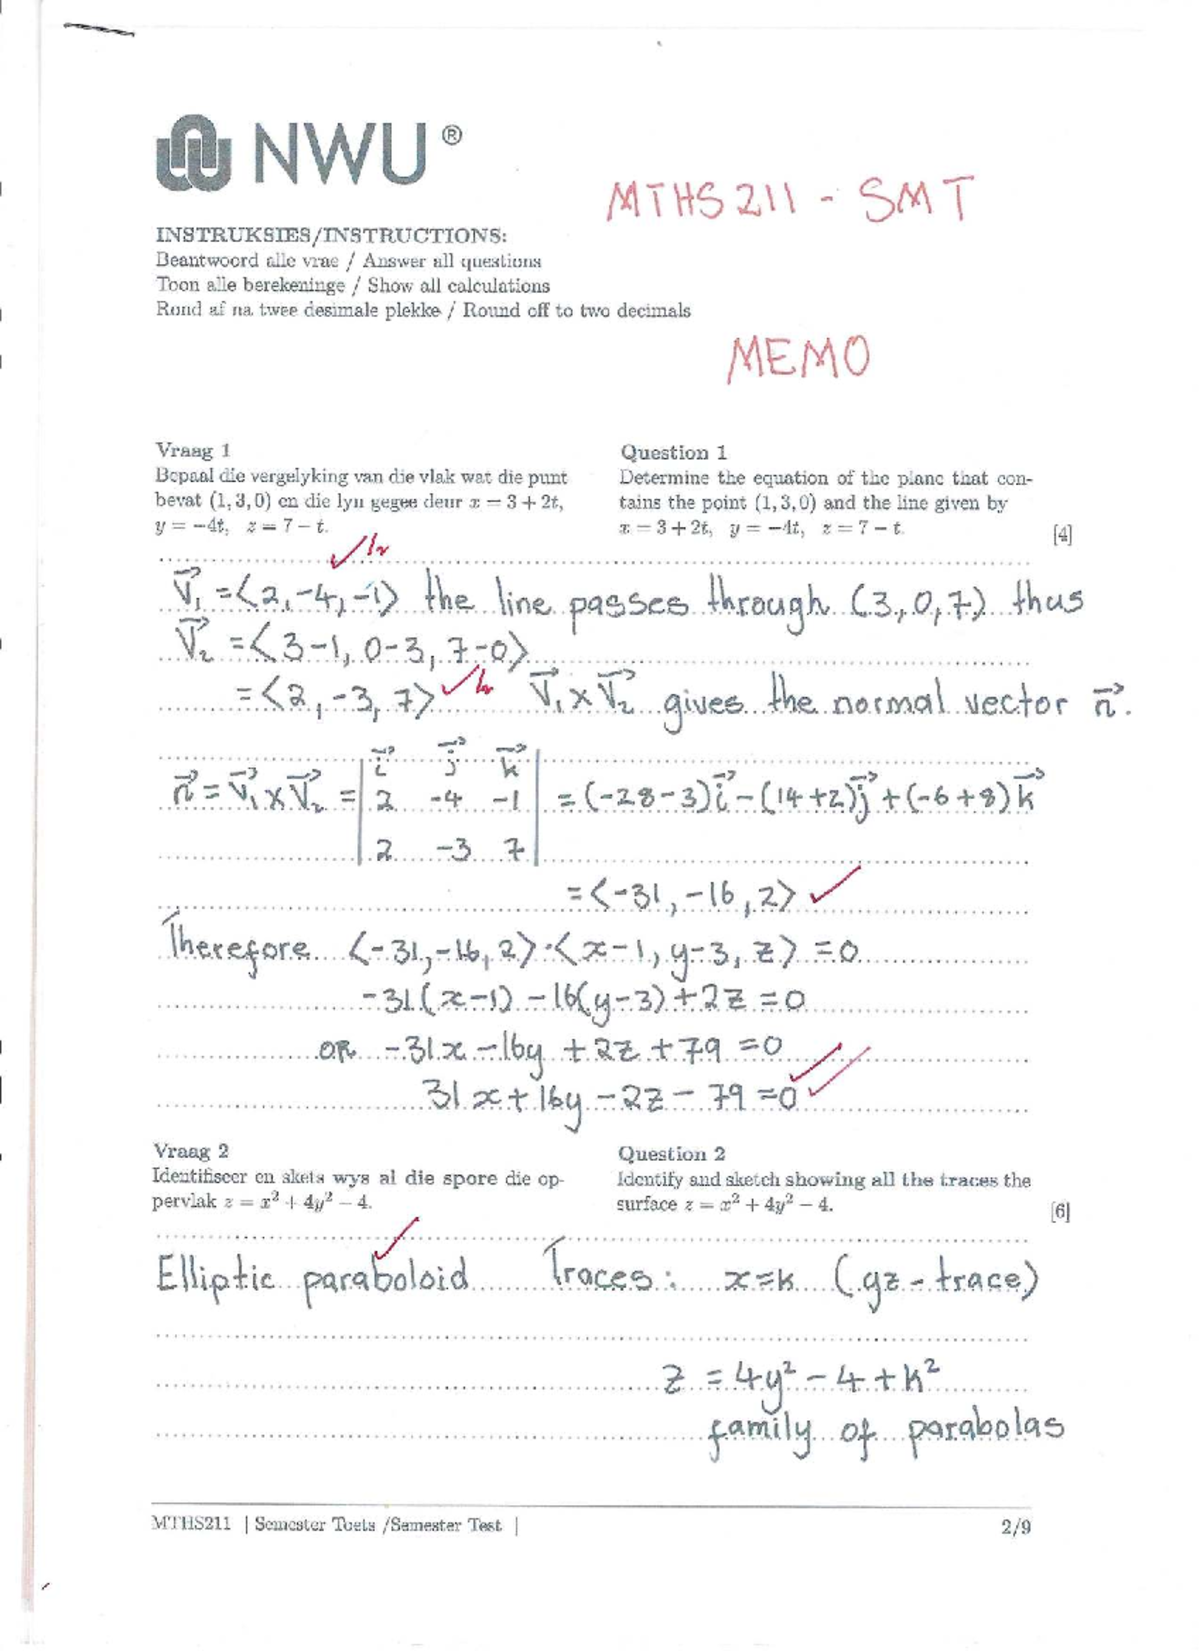 NWU®
MTHS 211 - SMT
INSTRUKSIES/INSTRUCTIONS:
Beantwoord alle vrae / Answer all questions
Toon alle berekeninge / Show all calculations
Rond af na twee desimale plekke / Round off to two decimals
MEMO
Vraag 1
Bepaal die vergelyking van die vlak wat die punt
bevat (1, 3, 0) en die lyn gegee deur x = 3 + 2t,
y = −4t, z = 7 − t.
Question 1
Determine the equation of the plane that con-
tains the point (1, 3, 0) and the line given by
x = 3 + 2t, y = −4t, z = 7 − t.
[4]
V⃗₁ = ⟨2, -4, -1⟩ the line passes through (3, 0, 7) thus
V⃗₂ = ⟨3-1, 0-3, 7-0⟩
= ⟨2, -3, 7⟩ V⃗₁ × V⃗₂ gives the normal vector n⃗.
i⃗ j⃗ k⃗
n⃗ = V⃗₁ × V⃗₂ = | 2 -4 -1 | = (-28-3)i⃗ - (14+2)j⃗ + (-6+8)k⃗
2 -3 7
= ⟨-31, -16, 2⟩
Therefore ⟨-31, -16, 2⟩ · ⟨x-1, y-3, z⟩ = 0
-31(x-1) - 16(y-3) + 2z = 0
OR -31x - 16y + 2z + 79 = 0
31x + 16y - 2z - 79 = 0
Vraag 2
Identifiseer en skets wys al die spore die op-
pervlak z = x² + 4y² − 4.
Question 2
Identify and sketch showing all the traces the
surface z = x² + 4y² − 4.
[6]
Elliptic paraboloid Traces: x = k (yz - trace)
z = 4y² - 4 + k²
family of parabolas
MTHS211 | Semester Toets /Semester Test |
2/9